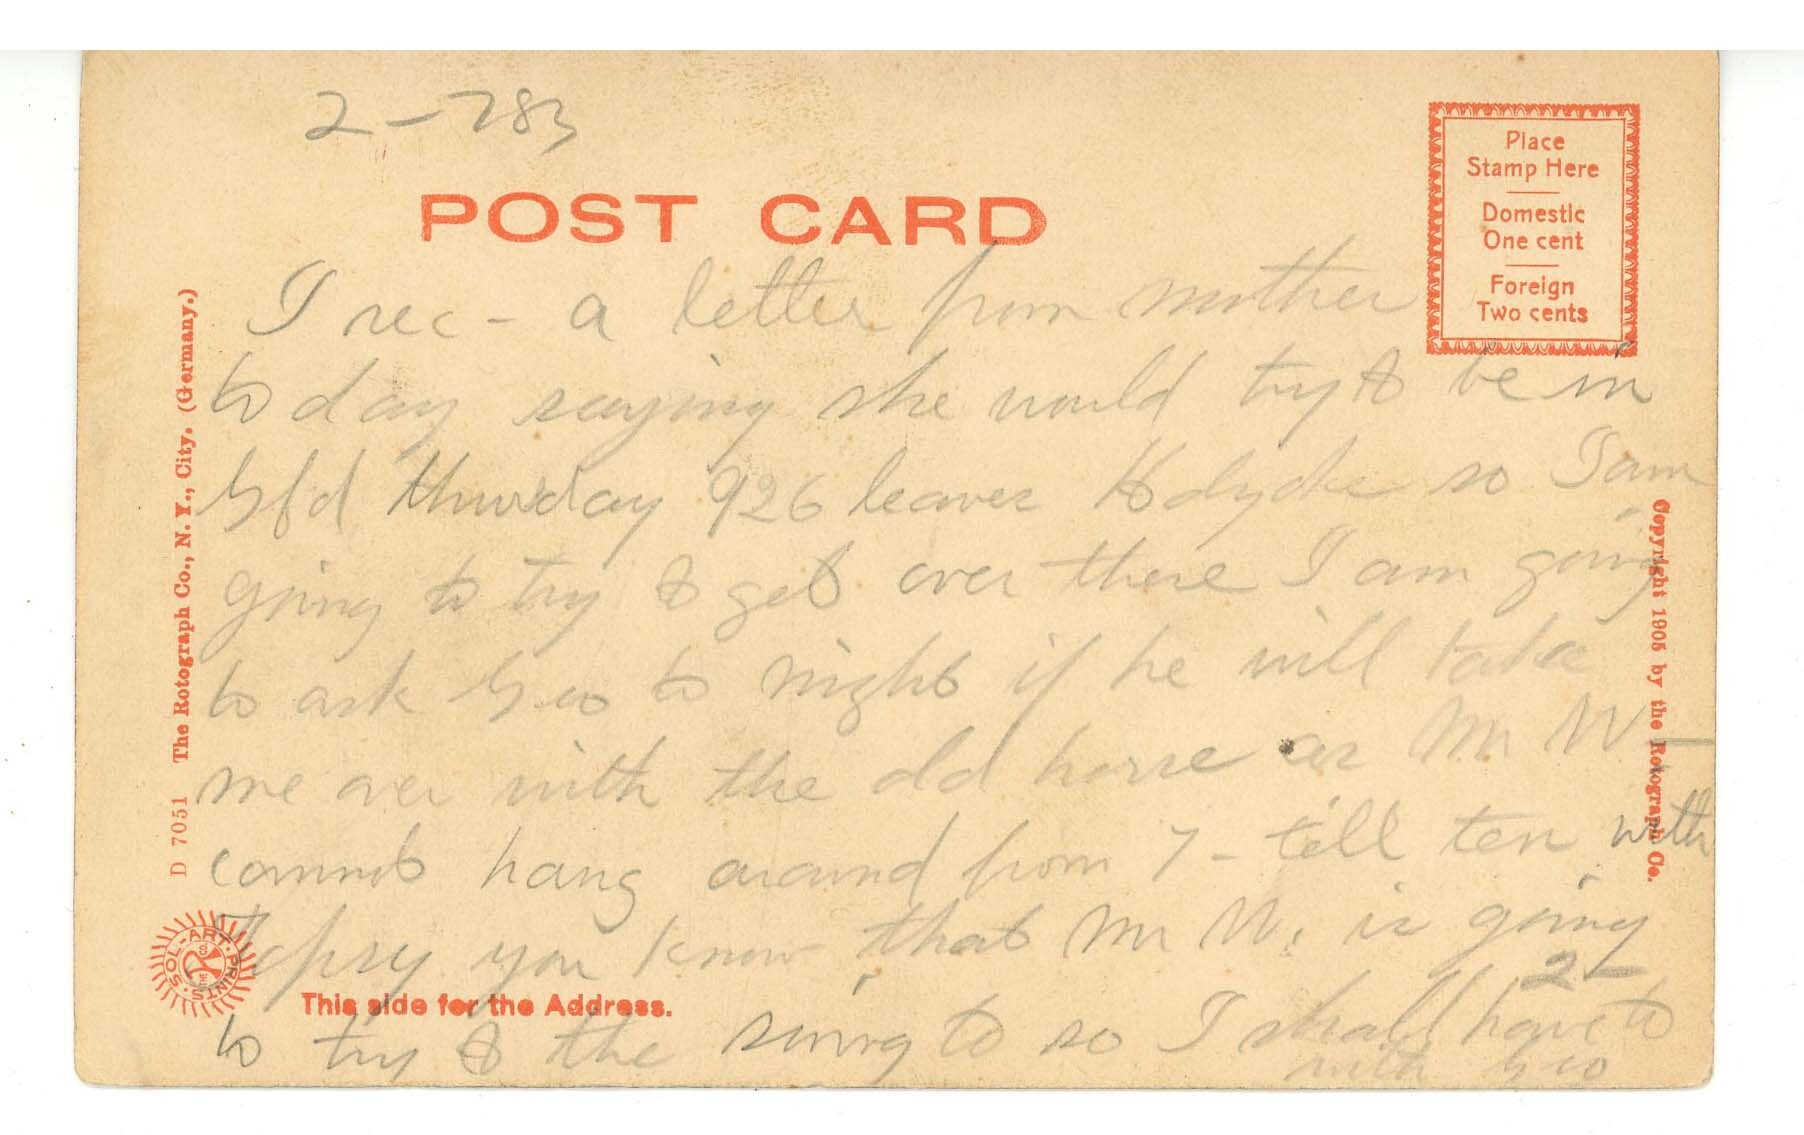 2-783
POST CARD
Place
Stamp Here
Domestic
One cent
Foreign
Two cents
I rec- a letter from mother
to day saying she would try to be in
Gfd thursday 926 leaves Holyoke so I am
going to try to get over there I am going
to ask Geo to night if he will take
me over with the old horse as Mr W-
cannot hang around from 7- till ten with
you know that Mr W. is going
to try to the swing to so I shall have to
2-
with Geo
This side for the Address.
D 7051 The Rotograph Co., N. Y., City. (Germany.)
SOL-ART PRINTS
Copyright 1905 by the Rotograph Co.